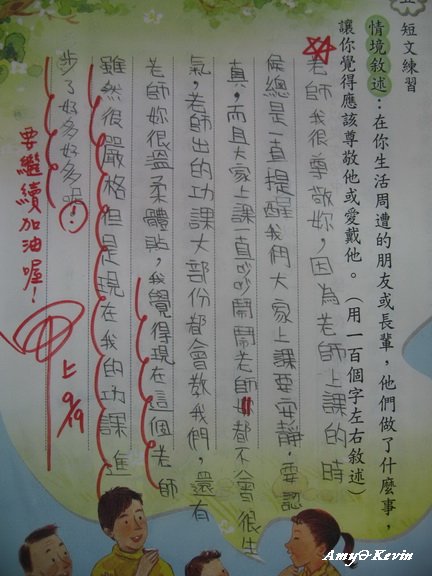 短文練習
情境敘述：在你生活周遭的朋友或長輩，他們做了什麼事，
讓你覺得應該尊敬他或愛戴他。（用一百個字左右敘述）
老師我很尊敬妳，因為老師上課的時
候總是一直提醒我們大家上課要安靜，要認
真，而且大家上課一直吵吵鬧鬧老師都不會很生
氣，老師出的功課大部份都會教我們，還有
老師妳很溫柔體貼，我覺得現在這個老師
雖然很嚴格但是現在我的功課進
步了好多好多喔！
要繼續加油喔！
上 9/19
Amy&Kevin